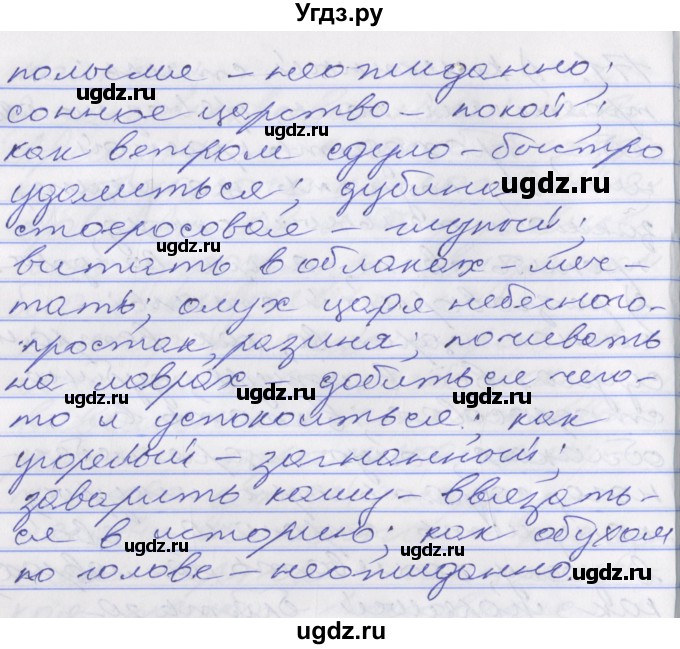 Угдз.ру
полымя – неожиданно;
ugdz.ru ugdz.ru
сонное царство – покой;
ugdz.ru
как ветром сдуло – быстро
удалиться; дубина
ugdz.ru
стоеросовая – глупый;
ugdz.ru
витать в облаках – меч-
тать; олух царя небесного –
ugdz.ru ugdz.ru
простак, разиня; почивать
на лаврах – добиться чего-
ugdz.ru ugdz.ru
то и успокоиться; как
угорелый – загнанный;
ugdz.ru
заварить кашу – ввязать-
ся в историю; как обухом
ugdz.ru
по голове – неожиданно.
ugdz.ru
ugdz.ru